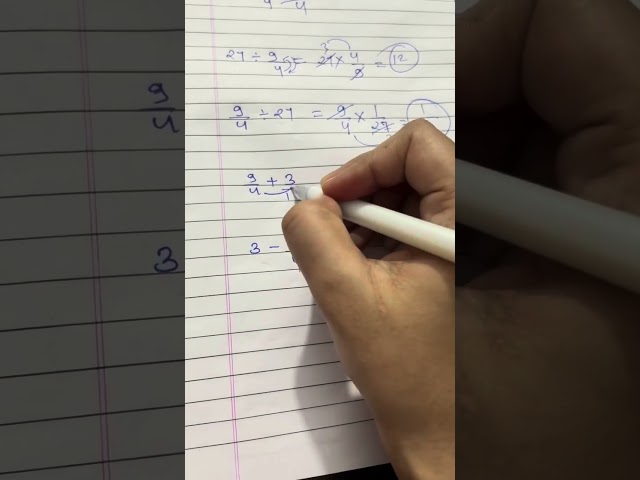 4
27 ÷ 9/4 = 27 × 4/9 = 12
9/4 ÷ 27 = 9/4 × 1/27 = 1
9/4 + 3/1
3 −